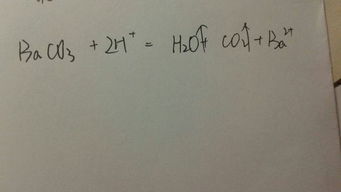 BaCO₃ + 2H⁺ = H₂O + CO₂↑ + Ba²⁺